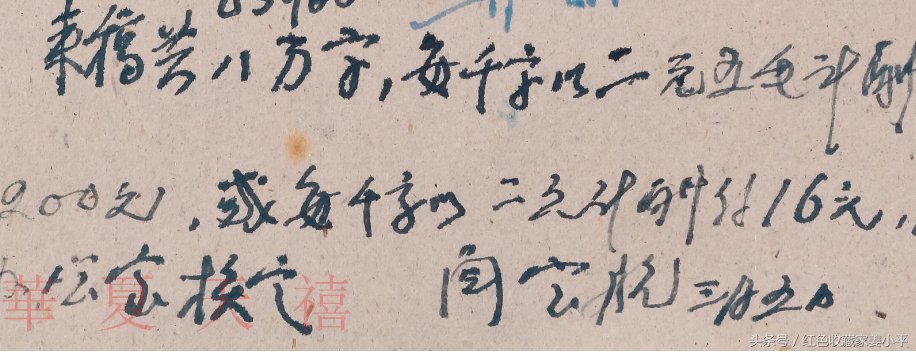 来稿共八万字,每千字以二元五毛计酬
200元,或每千字以二元计酬付16元,
公室核定 三月五日
華夏天禧
头条号 / 红色收藏家姜小平